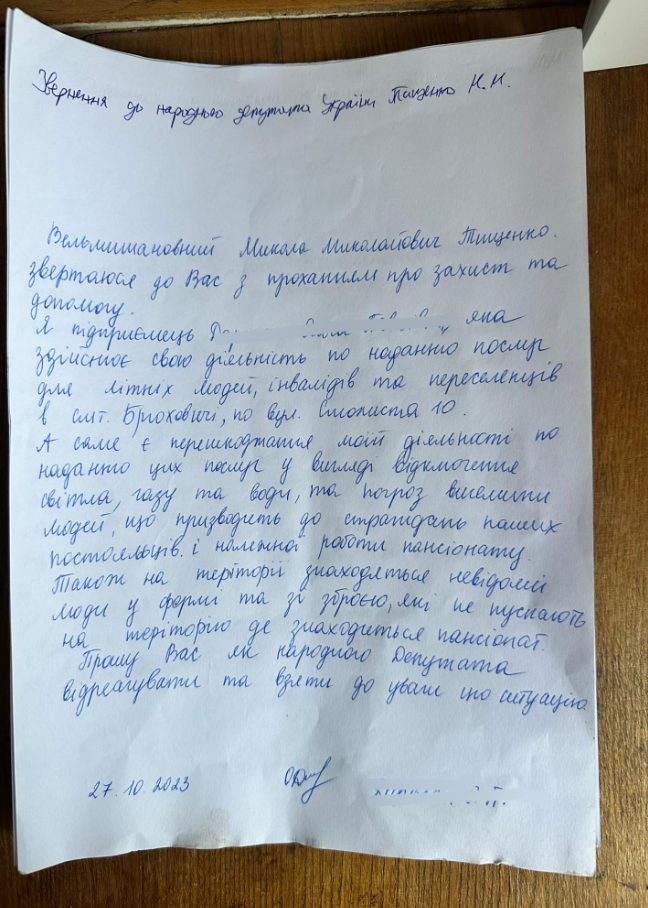 Звернення до народного депутата України Тищенко М.М.
Вельмишановний Микола Миколайович Тищенко.
звертаюся до Вас з проханням про захист та
допомогу.
Я підприємець яка
здійснює свою діяльність по наданню послуг
для літніх людей, інвалідів та переселенців
в смт. Брюховичі, по вул. Смолиста 10.
А саме є перешкоджання моїй діяльності по
наданню цих послуг у вигляді відключення
світла, газу та води, та погроз виселити
людей, що призводить до страждань наших
постояльців. і належної роботи пансіонату.
Також на теріторії знаходяться невідомі
люди у формі та зі зброєю, які не пускають
на теріторію де знаходиться пансіонат.
Прошу Вас як народного Депутата
відреагувати та взяти до уваги цю ситуацію.
27.10.2023